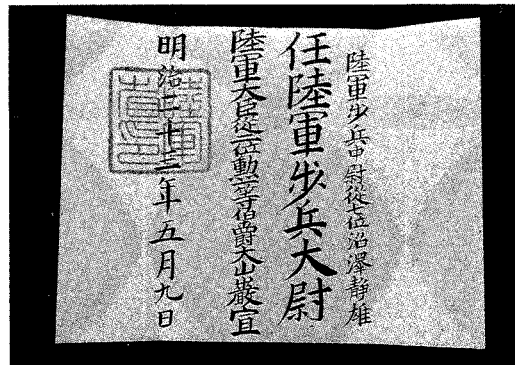 陸軍步兵中尉從七位沼澤靜雄
任陸軍步兵大尉
陸軍大臣從二位勲一等伯爵大山巖宣
明治二十三年五月九日